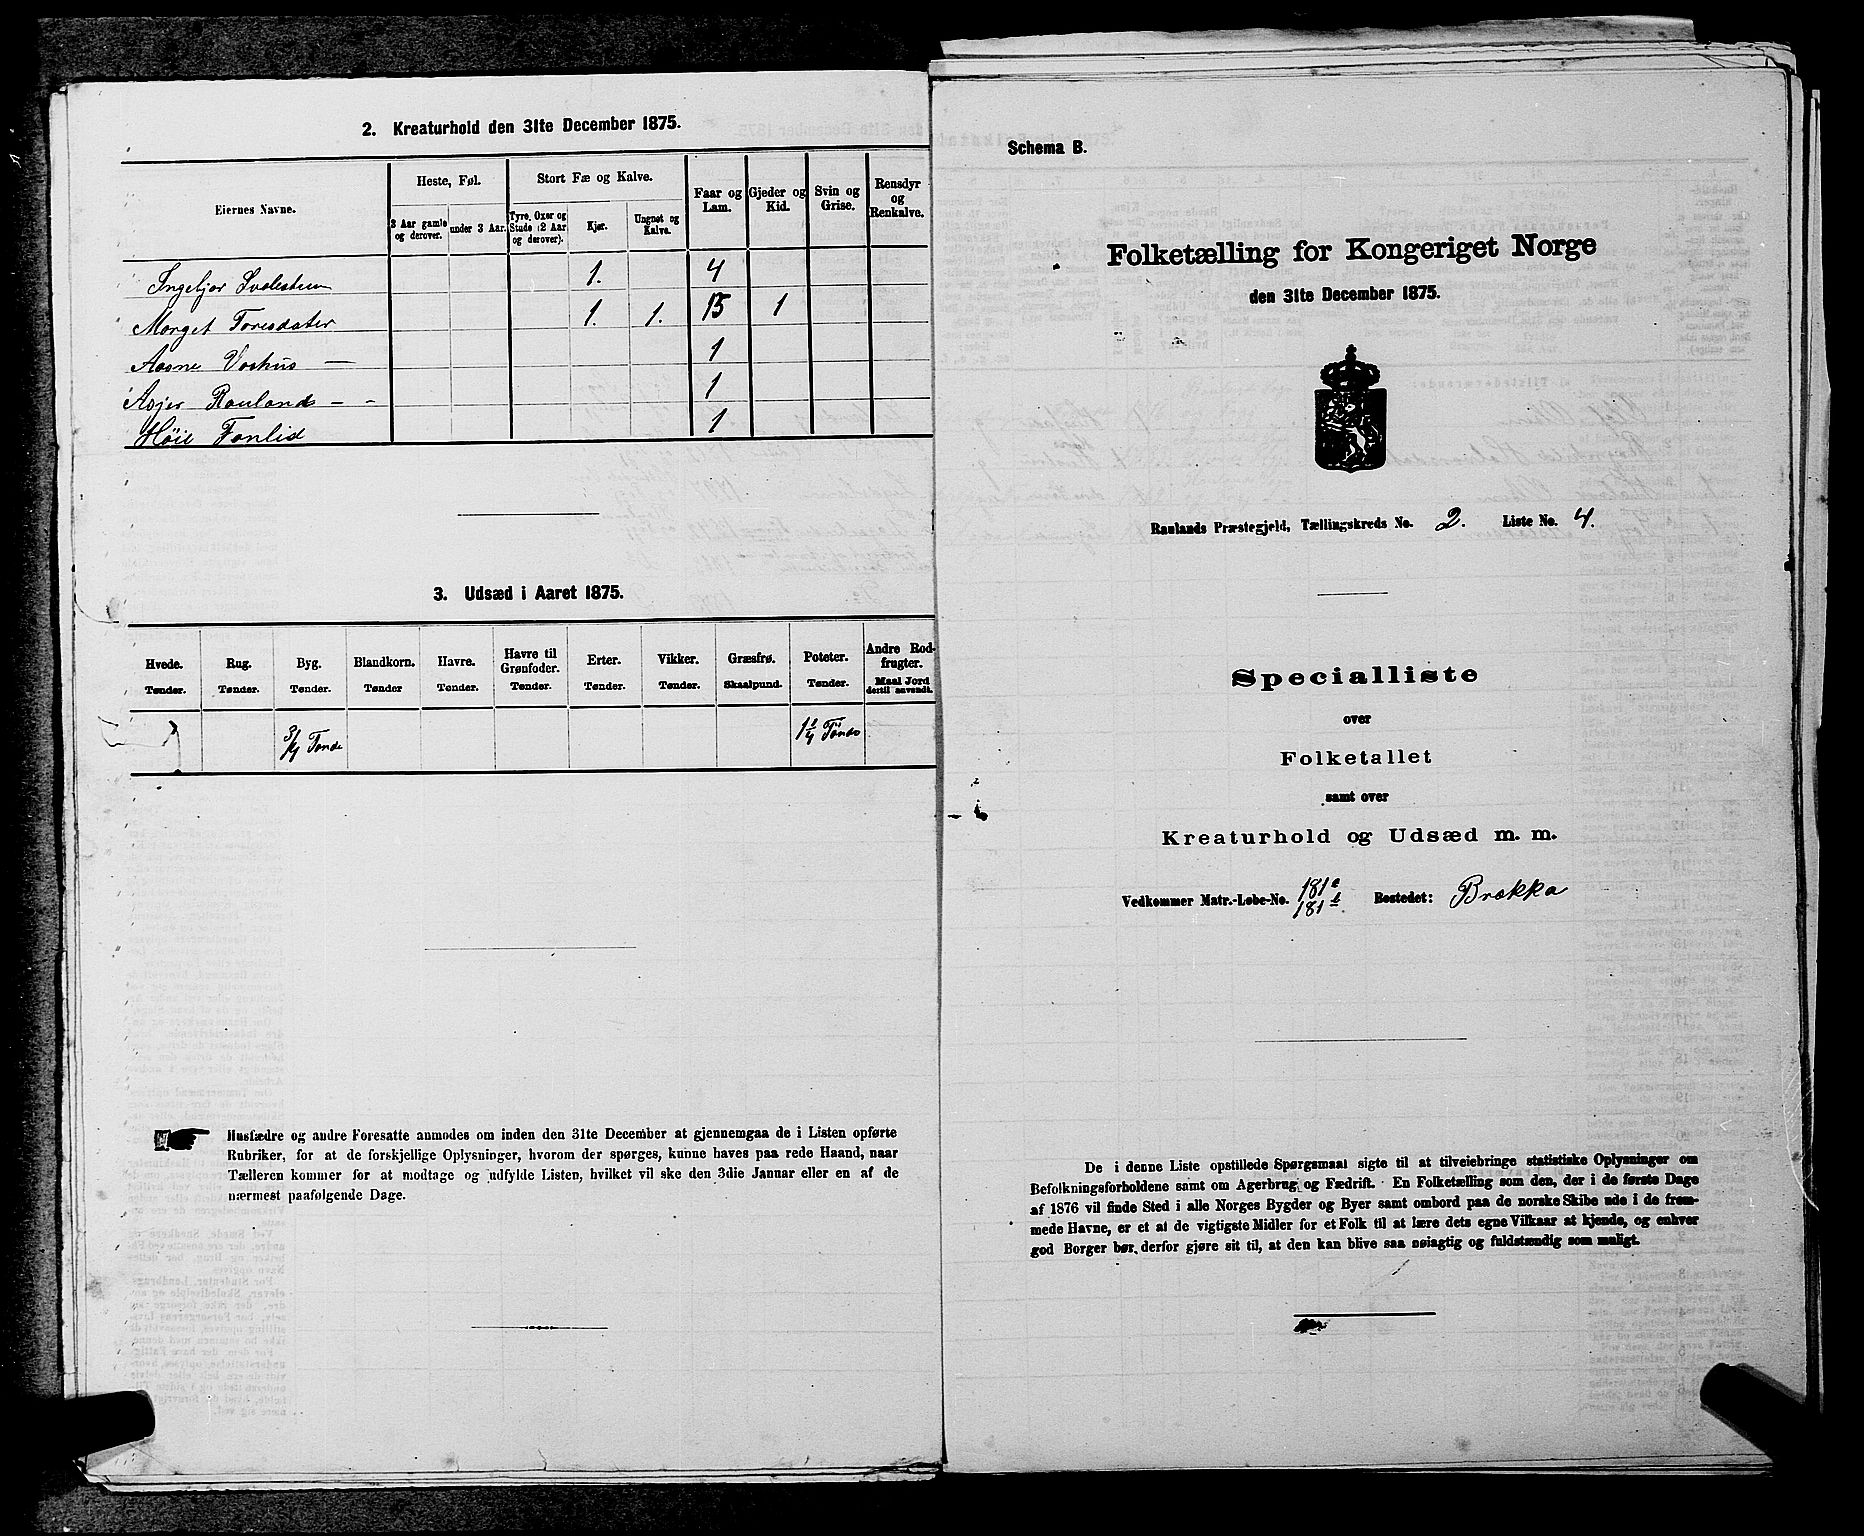 2. Kreaturhold den 31te December 1875.
Eiernes Navne.
Heste, Føl.
Stort Fæ og Kalve.
Faar og Lam.
Gjeder og Kid.
Svin og Grise.
Rensdyr og Renkalve.
3 Aar gamle og derover.
under 3 Aar.
Tyre, Oxer og Stude (2 Aar og derover).
Kjør.
Ungnøt og Kalve.
Ingebjør 1. 4
Morget Toresdater 1. 1. 15 1
Aasne Vaahus — 1
Asjer Rauland - - 1
Høie Tonlid 1
3. Udsæd i Aaret 1875.
Hvede. Rug. Byg. Blandkorn. Havre. Havre til Grønfoder. Erter. Vikker. Græsfrø. Poteter. Andre Rodfrugter.
Tønder. Tønder. Tønder. Tønder Tønder. Tønder. Tønder. Tønder. Skaalpund. Tønder. Maal Jord dertil anvendt.
3/4 Tønde
Husfædre og andre Foresatte anmodes om inden den 31te December at gjennemgaa de i Listen opførte
Rubriker, for at de forskjellige Oplysninger, hvorom der spørges, kunne haves paa rede Haand, naar
Tælleren kommer for at modtage og udfylde Listen, hvilket vil ske den 3die Januar eller en af de
nærmest paafølgende Dage.
Schema B.
Folketælling for Kongeriget Norge
den 31te December 1875.
Raulands Præstegjeld, Tællingskreds No. 2. Liste No. 4.
Specialliste
over
Folketallet
samt over
Kreaturhold og Udsæd m. m.
Vedkommer Matr.-Løbe-No. 181a 181b. Bostedet: Brækka
De i denne Liste opstillede Spørgsmaal sigte til at tilveiebringe statistiske Oplysninger om
Befolkningsforholdene samt om Agerbrug og Fædrift. En Folketælling som den, der i de første Dage
af 1876 vil finde Sted i alle Norges Bygder og Byer samt ombord paa de norske Skibe ude i de frem-
mede Havne, er et af de vigtigste Midler for et Folk til at lære dets egne Vilkaar at kjende, og enhver
god Borger bør derfor gjøre sit til, at den kan blive saa nøiagtig og fuldstændig som muligt.